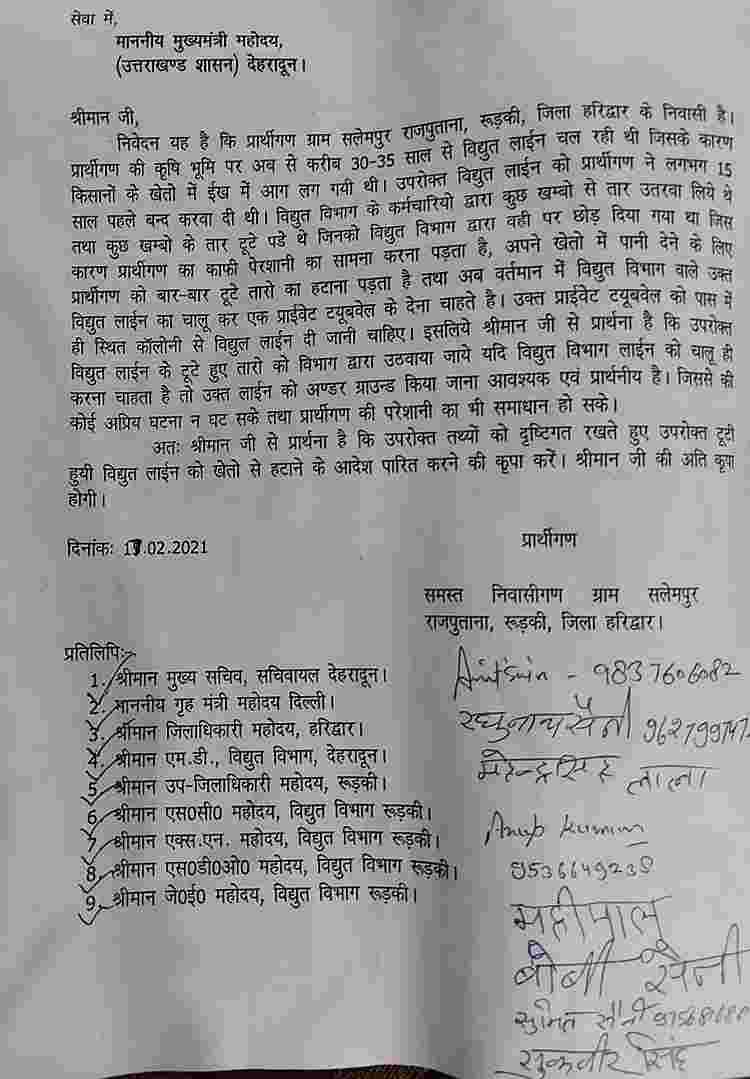 सेवा में,
माननीय मुख्यमंत्री महोदय,
(उत्तराखण्ड शासन) देहरादून।
श्रीमान जी,
निवेदन यह है कि प्रार्थीगण ग्राम सलेमपुर राजपुताना, रूड़की, जिला हरिद्वार के निवासी है।
प्रार्थीगण की कृषि भूमि पर अब से करीब 30-35 साल से विद्युत लाईन चल रही थी जिसके कारण
किसानों के खेतो में ईख में आग लग गयी थी। उपरोक्त विद्युत लाईन को प्रार्थीगण ने लगभग 15
साल पहले बन्द करवा दी थी। विद्युत विभाग के कर्मचारियो द्वारा कुछ खम्बो से तार उतरवा लिये थे
तथा कुछ खम्बो के तार टूटे पडे थे जिनको विद्युत विभाग द्वारा वही पर छोड़ दिया गया था जिस
कारण प्रार्थीगण का काफी पेरशानी का सामना करना पड़ता है, अपने खेतो में पानी देने के लिए
प्रार्थीगण को बार-बार टूटे तारो का हटाना पड़ता है तथा अब वर्तमान में विद्युत विभाग वाले उक्त
विद्युत लाईन का चालू कर एक प्राईवेट टयूबवेल के देना चाहते है। उक्त प्राईवेट टयूबवेल को पास में
ही स्थित कॉलोनी से विद्युत लाईन दी जानी चाहिए। इसलिये श्रीमान जी से प्रार्थना है कि उपरोक्त
विद्युत लाईन के टूटे हुए तारो को विभाग द्वारा उठवाया जाये यदि विद्युत विभाग लाईन को चालू ही
करना चाहता है तो उक्त लाईन को अण्डर ग्राउन्ड किया जाना आवश्यक एवं प्रार्थनीय है। जिससे की
कोई अप्रिय घटना न घट सके तथा प्रार्थीगण की परेशानी का भी समाधान हो सके।
अतः श्रीमान जी से प्रार्थना है कि उपरोक्त तथ्यों को दृष्टिगत रखते हुए उपरोक्त टूटी
हुयी विद्युत लाईन को खेतो से हटाने के आदेश पारित करने की कृपा करें। श्रीमान जी की अति कृपा
होगी।
दिनांकः .02.2021
प्रार्थीगण
समस्त निवासीगण ग्राम सलेमपुर
राजपुताना, रूड़की, जिला हरिद्वार।
प्रतिलिपिः-
1. श्रीमान मुख्य सचिव, सचिवायल देहरादून।
2. माननीय गृह मंत्री महोदय दिल्ली।
3. श्रीमान जिलाधिकारी महोदय, हरिद्वार।
4. श्रीमान एम.डी., विद्युत विभाग, देहरादून।
5. श्रीमान उप-जिलाधिकारी महोदय, रूड़की।
6. श्रीमान एस0सी0 महोदय, विद्युत विभाग रूड़की।
7. श्रीमान एक्स.एन. महोदय, विद्युत विभाग रूड़की।
8. श्रीमान एस0डी0ओ0 महोदय, विद्युत विभाग रूड़की।
9. श्रीमान जे0ई0 महोदय, विद्युत विभाग रूड़की।
9837606082
रघुनाथ सैनी
महेन्द्र सिंह लाला
Anup Kumar
महीपाल
बोबी सैनी
सुमित सैनी
सिंह